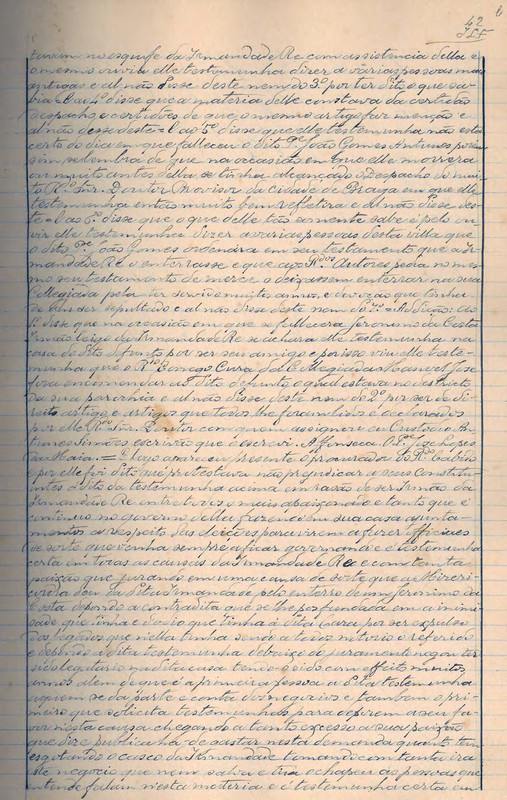 42
tavam no esquife da Irmandade Re com assistencia della e
o mesmo ouviu elle testemunha dizer a varias pessoas mais
antigas e al não disse deste nem do 3º por ter dito o que sa-
bia = E ao 4º disse que a materia delle constava da certidão
despacho e certidões de que o mesmo artigo faz menção e
al não disse deste = E ao 5º disse que elle testemunha não está
certo do dia em que falleceu o dito Pe João Gomes Antunes porem
sim se lembra de que na occasião em que elle morrera
ou muito antes della se tinha alcançado o Despacho do mui-
to Rdo Snr. Doutor Provisor da cidade de Braga em que elle
testemunha então muito bem reflectira e al não disse des-
te = E ao 6º disse que o que delle tão somente sabe é pelo ou-
vir elle testemunha dizer a varias pessoas desta villa que
o dito Pe João Gomes ordenára em seu testamento que a Ir-
mandade Re o enterrasse e que aos Rdos Autores pedia no mes-
mo seu testamento de merce o deixassem enterrar na sua
Collegiada pela ter servido muito annos e devoção que tinha
de ahi ser sepultado e al não disse deste nem do 7º = Addição: ao
1º disse que na occasião em que se fallecera Jeronimo da Costa
Irmão leigo da Irmandade Re se achara elle testemunha na
casa do dito defunto por ser seu amigo e por isso viu elle teste-
munha que o Rdo Conego Cura da Collegiada Manoel José
fora encommendar ao dito defunto o qual estava no destricto
da sua parochia e al não disse deste nem do 2º por ser de di-
reito artigo e artigos que todos lhe foram lidos e declarados
por elle Rdo Snr. Doutor com quem assignou eu Custodio An-
tunes Simões escrivão que o escrevi. Affonseca O Pe José Lopes
da Maia. = E logo appareceu presente o procurador do Rdo Cabido
e por elle foi dito que protestava não prejudicar a seus Constitui-
ntes o dito da testemunha acima em razão de ser Irmão da
Irmandade Re entre todos o mais apaixonado e tanto que é
continuo no governo della fazendo em sua casa ajunta-
mentos a respeito das eleições para virem a fazer Officiaes
de sorte que venha sempre a ficar governando e é testemunha
certa em todas as causas da Irmandade Re e com tanta
paixão que jurando em uma causa de sorte que a Miseri-
cordia don da dita Irmandade pelo enterro de um Jeronimo da
Costa depondo a contradita que se lhe poz fundada em a inimi-
sade que tinha e odio que tinha á dita Casa por ser expulso
dos legados que nella tinha sendo a todos notorio o referido
e depondo a dita testemunha debaixo do juramento negou ter
sido legatario na dita casa tendo-o sido com effeito muitos
annos alem de que é a primeira pessoa a dita testemunha
a quem se da parte e conta dos negocios e tambem o pri-
meiro que solicita testemunhas para deporem a seu fa-
vor nesta causa chegando a tanto excesso a sua paixão
que diz e publica ha de gastar nesta demanda quanto tem
esgotando o casco da Irmandade tomando com tanta ira
este negocio que nem salva e tira o chapeu ás pessoas que
entende falam nesta materia e é testemunha certa em